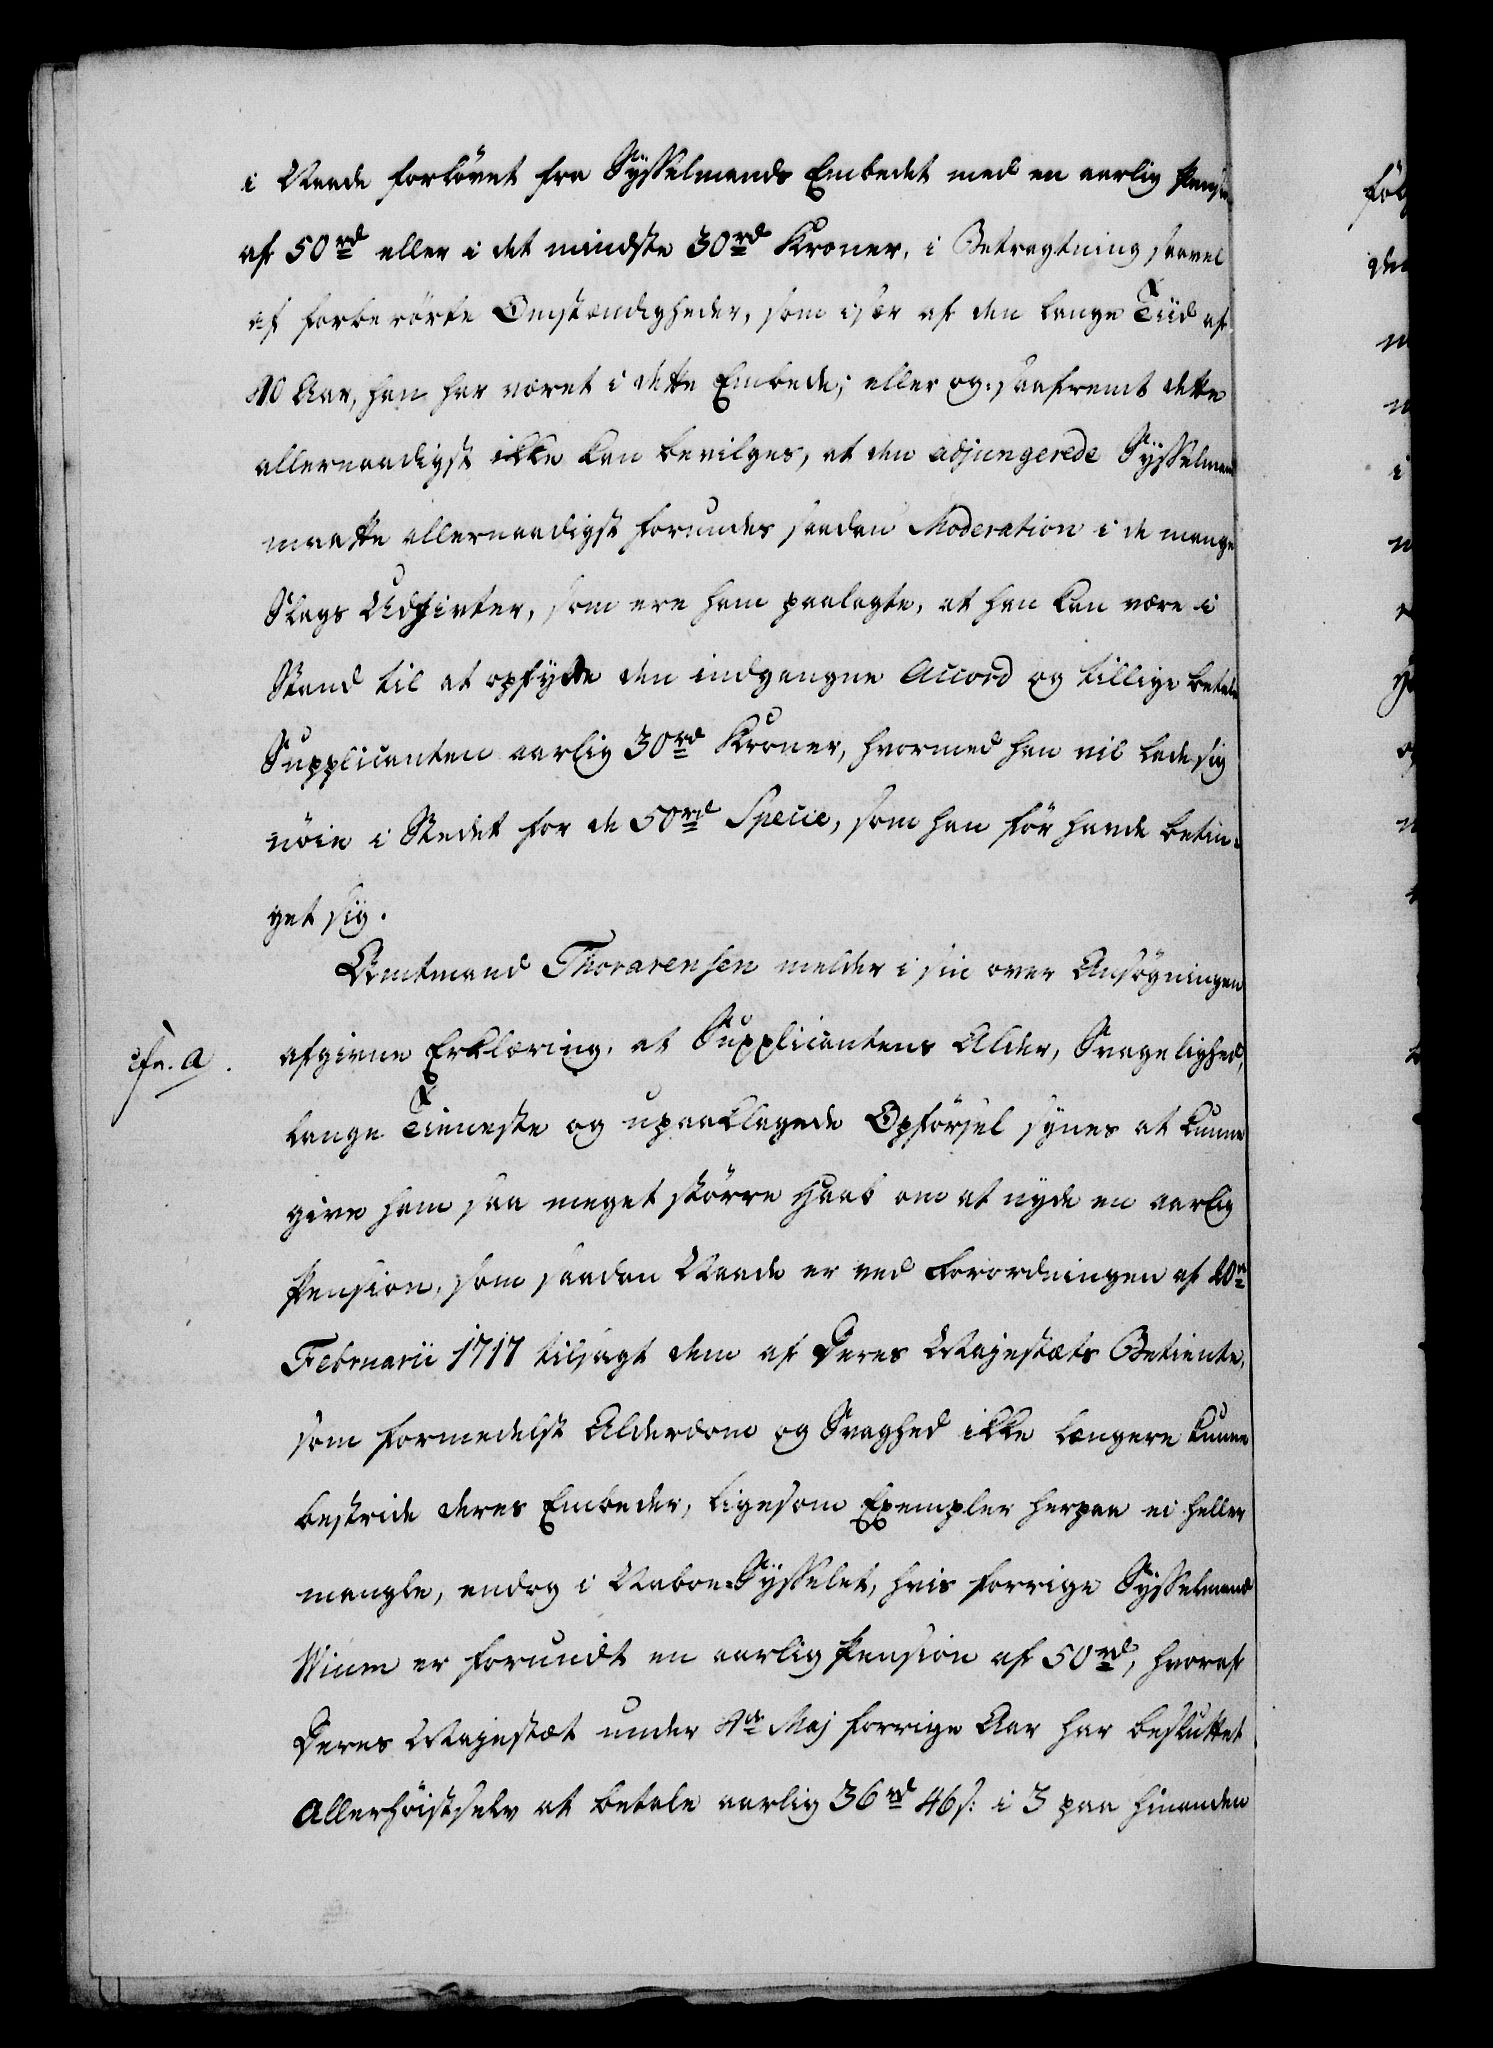 i Naade forlövet fra Sÿsselmands Embedet med en aarlig Pension
af 50rd eller i det mindste 30rd Kroner, i Betragtning saavel
af forberörte Omstændigheder, som især af den lange Tiid af
40 Aar, han har været i dette Embede; eller og, saafremt dette
allernaadigst ikke kan bevilges, at den adjungerede Sÿsselmand
maatte allernaadigst forundes saadan Moderation i de mange
Slags Udgivter, som ere ham paalagte, at han kan være i
Stand til at opfylde den indgangne Accord og tillige betale
Supplicanten aarlig 30rd Kroner, hvormed han vil lade sig
nöie i Stedet for de 50rd Specie, som han för havde betin-
get sig.
Amtmand Thorarensen melder i sin over Ansögningen
cfr. a.
afgivne Erklæring, at Supplicantens Alder, Svagelighed,
lange Tieneste og upaaklagede Opförsel synes at kunne
give ham saa meget större Haab om at nyde en aarlig
Pension, som saadan Naade er ved Forordningen af 20de
Februarii 1717 tilsagt dem af Deres Majestæts Betiente,
som formedelst Alderdom og Svaghed ikke længere kunne
bestride deres Embeder, ligesom Exempler herpaa ei heller
mangle, endog i Naboe-Sÿsselet, hvis forrige Sÿsselmand
Wium er forundt en aarlig Pension af 50rd, hvoraf
Deres Majestæt under 4de Maj forrige Aar har besluttet
Allerhöistselv at betale aarlig 36rd 46s: i 3 paa hinanden